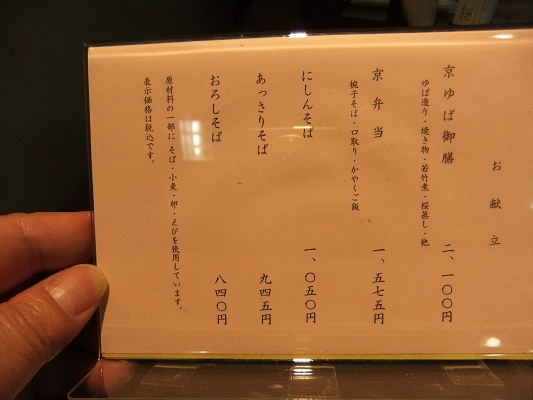 お献立
京ゆば御膳 二、一〇〇円
ゆば造り・焼き物・若竹煮・桜蒸し・他
京弁当 一、五七五円
椀子そば・口取り・かやくご飯
にしんそば 一、〇五〇円
あっさりそば 九四五円
おろしそば 八四〇円
原材料の一部に そば・小麦・卵・えびを使用しています。
表示価格は税込です。